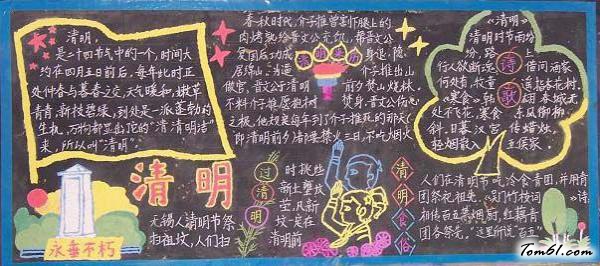 清明,
是二十四节气中的一个,时间大
约在四月五日前后,每年此时正
处仲春与暮春之交,天气暖和,嫩草
青青,新枝碧绿,到处是一派蓬勃的
生机,万物都显出它的“清清明洁”
来,所以叫“清明”。
清明
永垂不朽
春秋时代,介子推曾割下腿上的
肉烤熟给晋文公充饥,帮晋文公
复国后功成身退,隐
居绵山。
介子推出山
做官,晋文公于清明
前夕焚山烧林,
不料介子推
焚身。晋文公伤心
之极,他规定每年到了介子推死的那天(
即清明前夕)都要禁火三日,不吃烟火
过清明
无锡人清明节祭
扫祖坟,人们扫
时挑些
新土壅坟
茔,凡新
坟一定在
清明前
《清明》
清明时节雨纷
纷,路上
行人欲断
借问酒家
何处有,牧童
遥指杏花村。
《寒食》
春城无
处不飞花,寒食
东风御柳
斜。日暮汉宫
传蜡烛,
轻烟散入
五侯家。
诗歌
清明食俗
人们在清明节吃冷食青团,并用青
团祭祀祖先。《吴门竹枝词》
相传百五禁烟厨,红藕青
团各祭先。”这里所说“百五”
Tom61.com